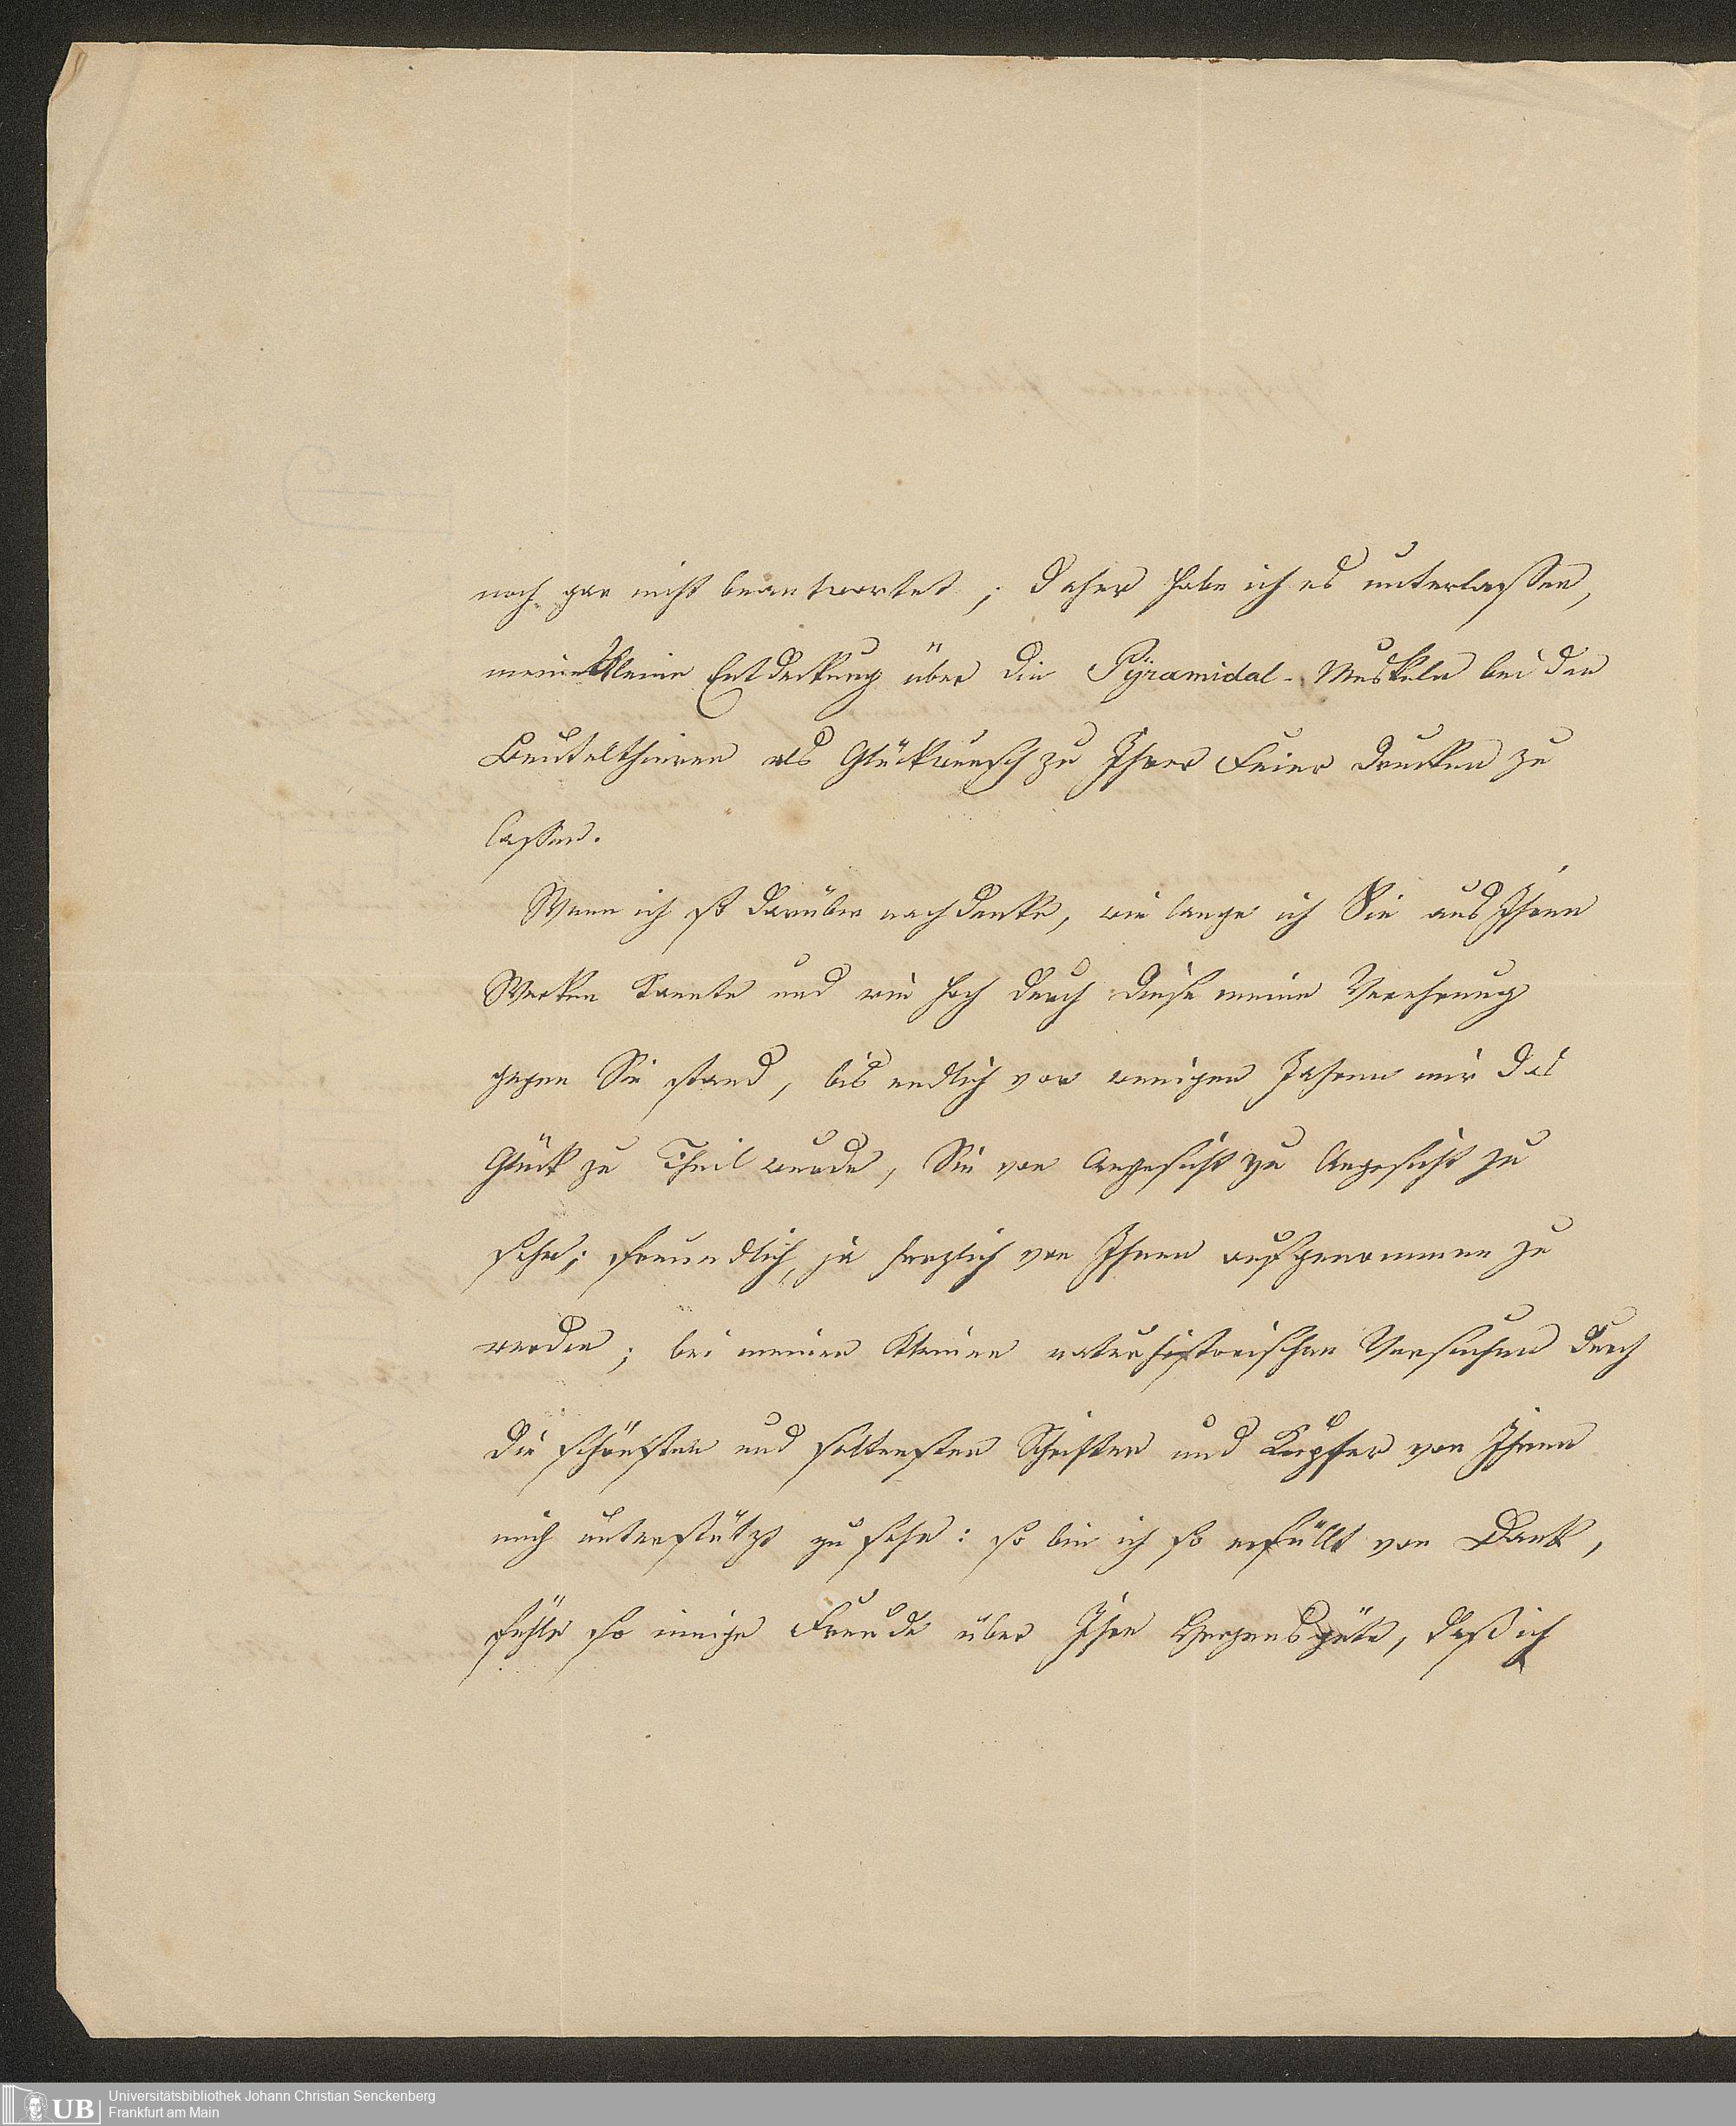 noch gar nicht beantwortet; daher habe ich es unterlassen,
meine kleine Entdeckung über die Pÿramidal-Muskeln bei den
Beutelthieren als Glückwunsch zu Ihrer Feier drucken zu
lassen.
Wenn ich so darüber nachdenke, wie lange ich Sie aus Ihren
Werken kannte und wie hoch durch diese meine Verehrung
gegen Sie stand, bis endlich vor wenigen Jahren mir das
Glück zu Theil wurde, Sie von Angesicht zu Angesicht zu
sehn; freundlich, ja herzlich von Ihnen aufgenommen zu
werden; bei meinen kleinen naturhistorischen Versuchen durch
die schönsten und seltensten Schriften und Kupfer von Ihnen
mich unterstützt zu sehn: so bin ich so erfüllt von Dank,
fühle so innige Freude über Ihre Herzensgüte, daß ich
UB
Universitätsbibliothek Johann Christian Senckenberg
Frankfurt am Main